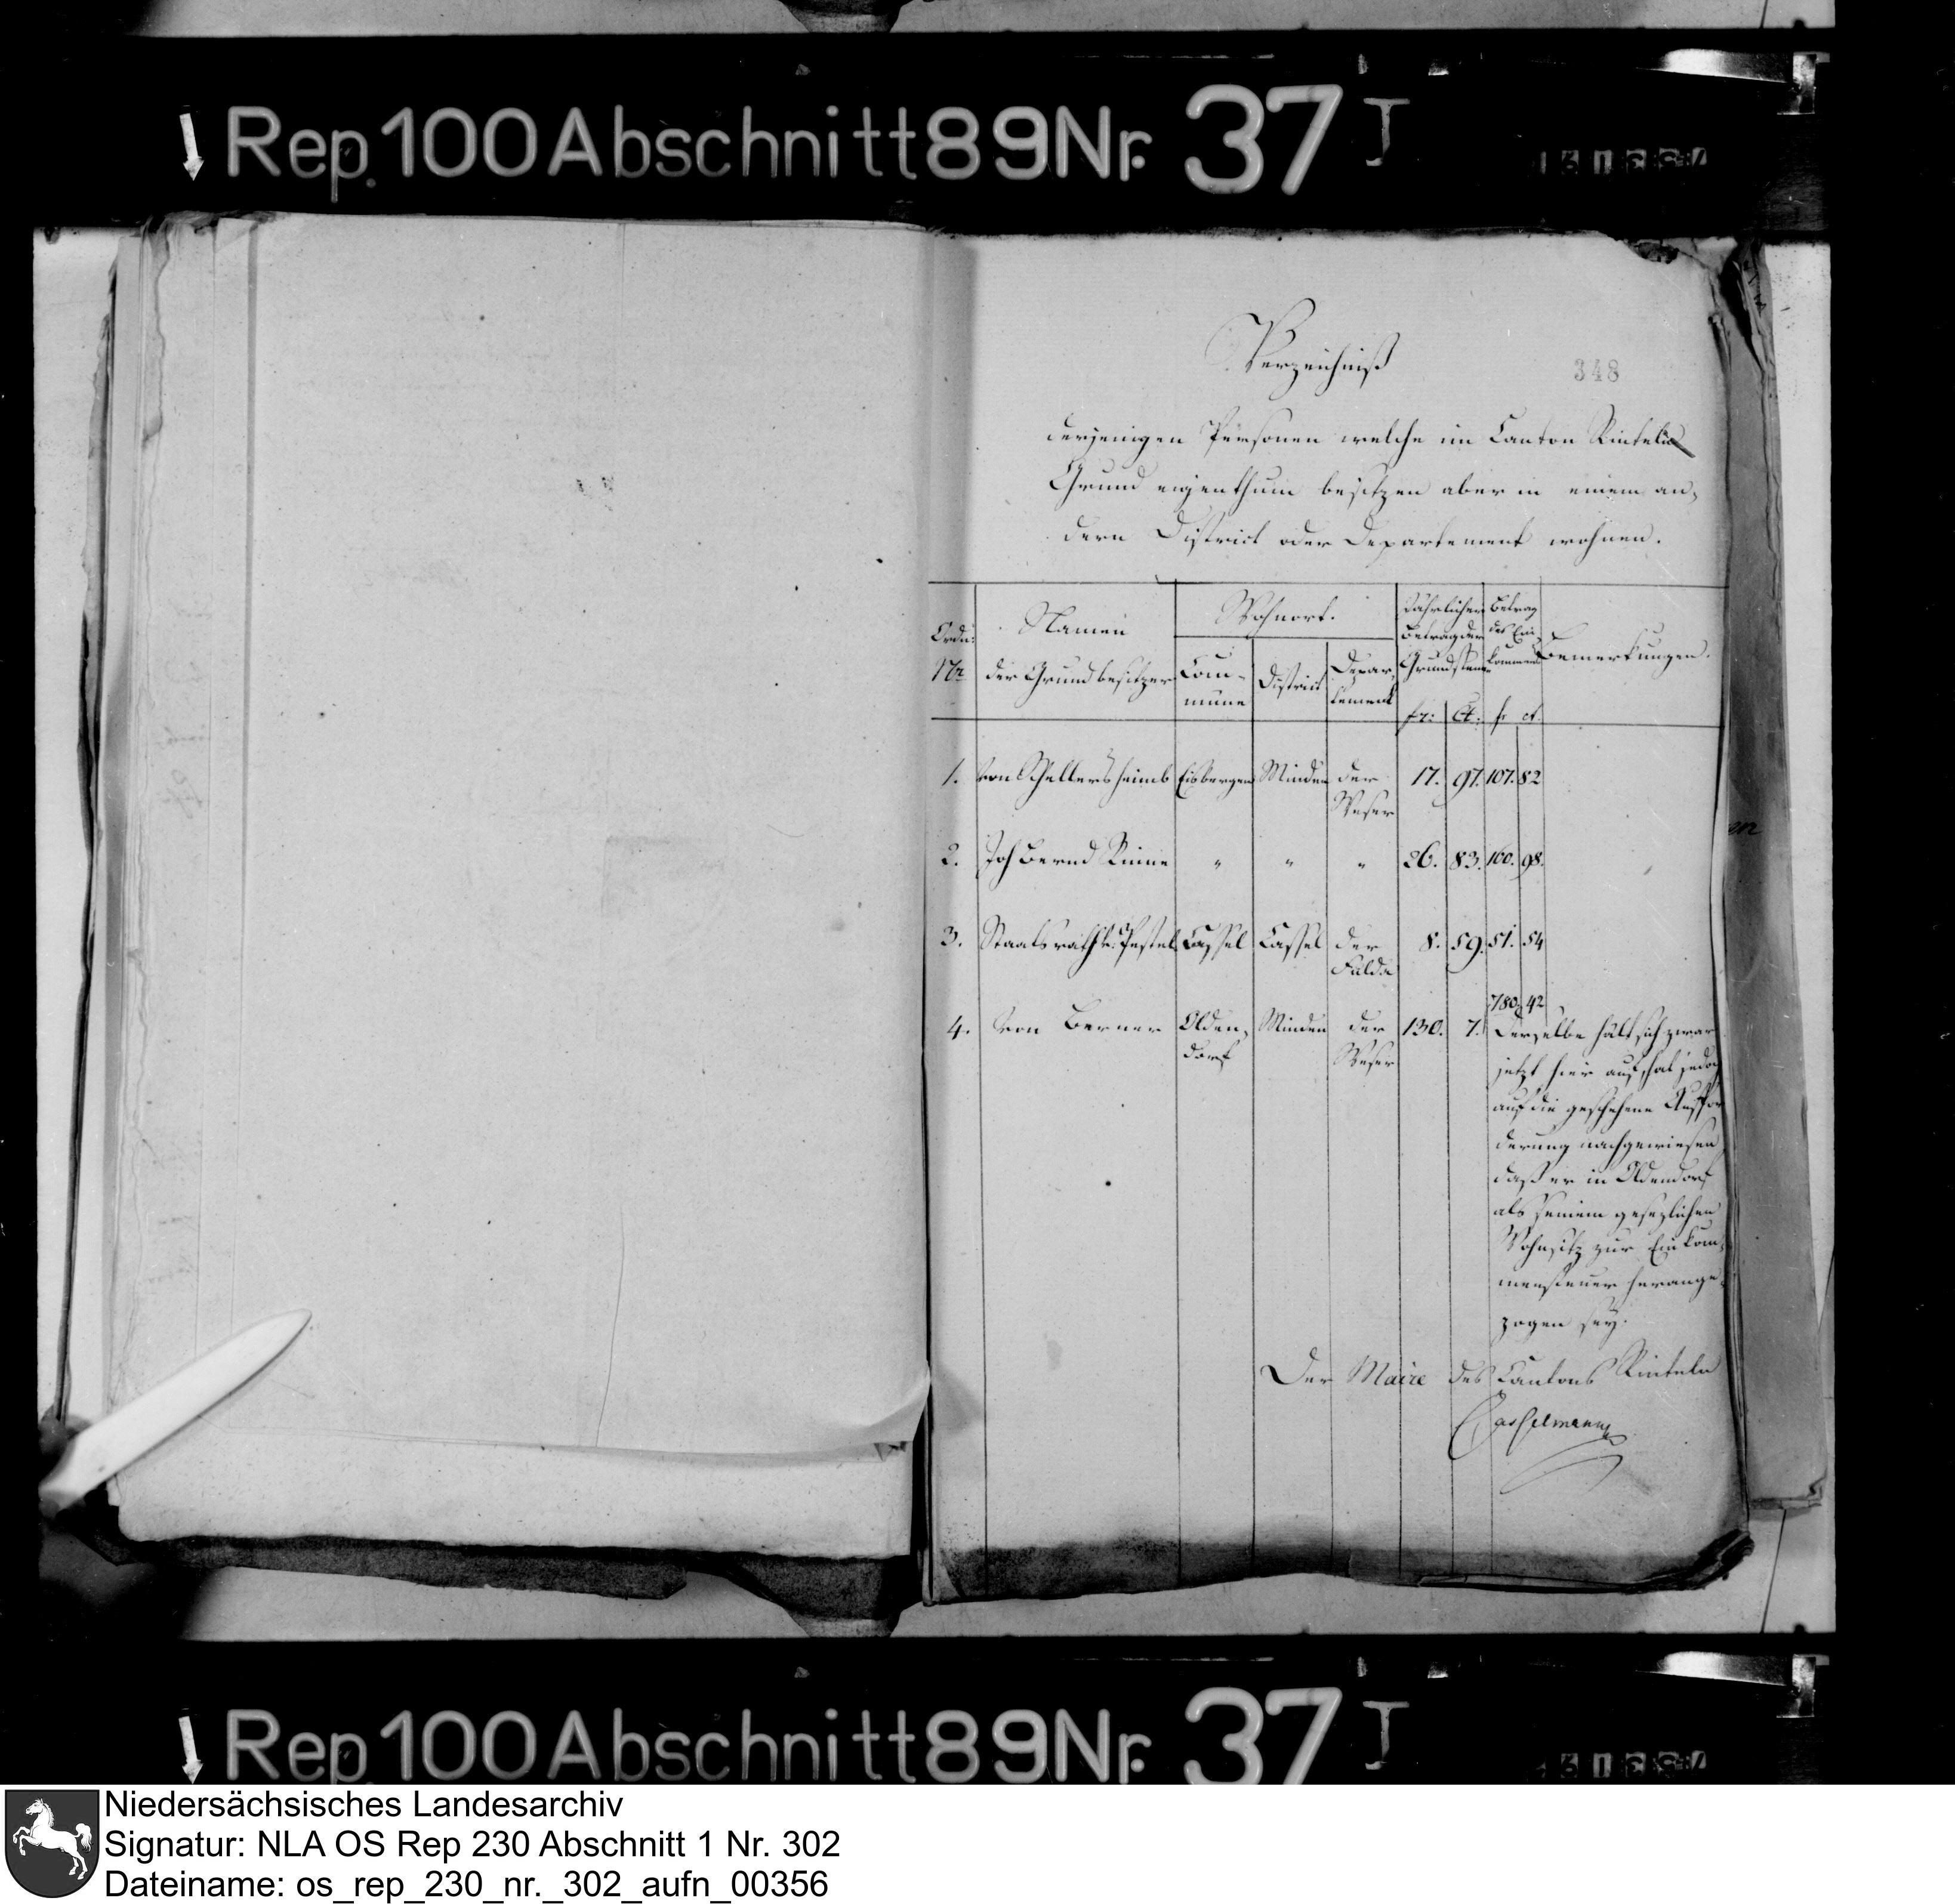 Rep. 100 Abschnitt 89 Nr. 37 I
Verzeichniß
348
derjenigen Personen welche im Canton Rinteln
Grund eigenthum besitzen aber in einem an-
dern District oder Departement wohnen.
Ordn: Nr | Namen der Grundbesitzer | Wohnort. Com-mune | District | Depar-tement | Jährlicher Betrag der Grundsteuer fr: Ct: | Betrag des Ein-kommens fr ct. | Bemerkungen.
1. von Schellersheimb Eisbergen Minden der Weser 17. 97. 107. 82
2. Joh Bernd Rinne " " " 26. 83. 160. 98.
3. Staatsrath v: Pestel Cassel Cassel der Fulda 8. 59. 51. 54
4. von Berner Olden-dorf Minden der Weser 130. 7. 780 42
Derselbe hält sich zwar
jetzt hier auf, hat jedoch
auf die geschehene Auffor
derung nachgewiesen
daß er in Oldendorf
als seinem gesezlichen
Wohnsitz zur Einkom-
mensteuer herange-
zogen sey.
Der Maire des Cantons Rinteln
Casselmann
en
Rep. 100 Abschnitt 89 Nr. 37 I
Niedersächsisches Landesarchiv
Signatur: NLA OS Rep 230 Abschnitt 1 Nr. 302
Dateiname: os_rep_230_nr._302_aufn_00356